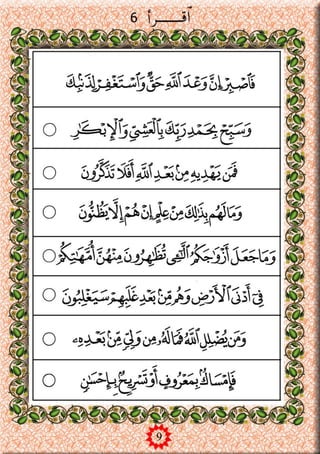 ٱقـــرأ 6
فَٱصْبِرْ إِنَّ وَعْدَ ٱللَّهِ حَقٌّ وَٱسْتَغْفِرْ لِذَنۢبِكَ
وَسَبِّحْ بِحَمْدِ رَبِّكَ بِٱلْعَشِىِّ وَٱلْإِبْكَٰرِ
فَمَن يَهْدِيهِ مِنۢ بَعْدِ ٱللَّهِ أَفَلَا تَذَكَّرُونَ
وَمَا لَهُم بِذَٰلِكَ مِنْ عِلْمٍ إِنْ هُمْ إِلَّا يَظُنُّونَ
وَمَا جَعَلَ أَزْوَٰجَكُمُ ٱلَّٰٓـِٔى تُظَٰهِرُونَ مِنْهُنَّ أُمَّهَٰتِكُمْ
فِىٓ أَدْنَى ٱلْأَرْضِ وَهُم مِّنۢ بَعْدِ غَلَبِهِمْ سَيَغْلِبُونَ
وَمَن يُضْلِلِ ٱللَّهُ فَمَا لَهُۥ مِن وَلِىٍّ مِّنۢ بَعْدِهِۦ
فَإِمْسَاكٌۢ بِمَعْرُوفٍ أَوْ تَسْرِيحٌۢ بِإِحْسَٰنٍ
9